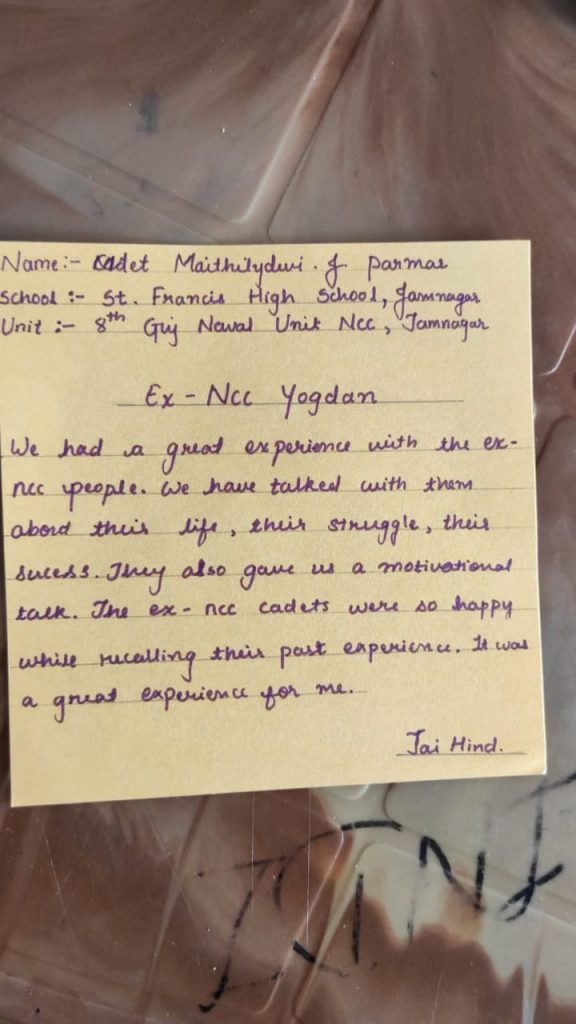 Name:- Cadet Maithilydwi. J. Parmar
School :- St. Francis High School, Jamnagar
Unit :- 8th Guj Naval Unit Ncc, Jamnagar
Ex - Ncc Yogdan
We had a great experience with the ex-
ncc people. We have talked with them
abord their life, their struggle, their
sucess. They also gave us a motivational
talk. The ex- ncc cadets were so happy
while recalling their past experience. It was
a great experience for me.
Jai Hind.